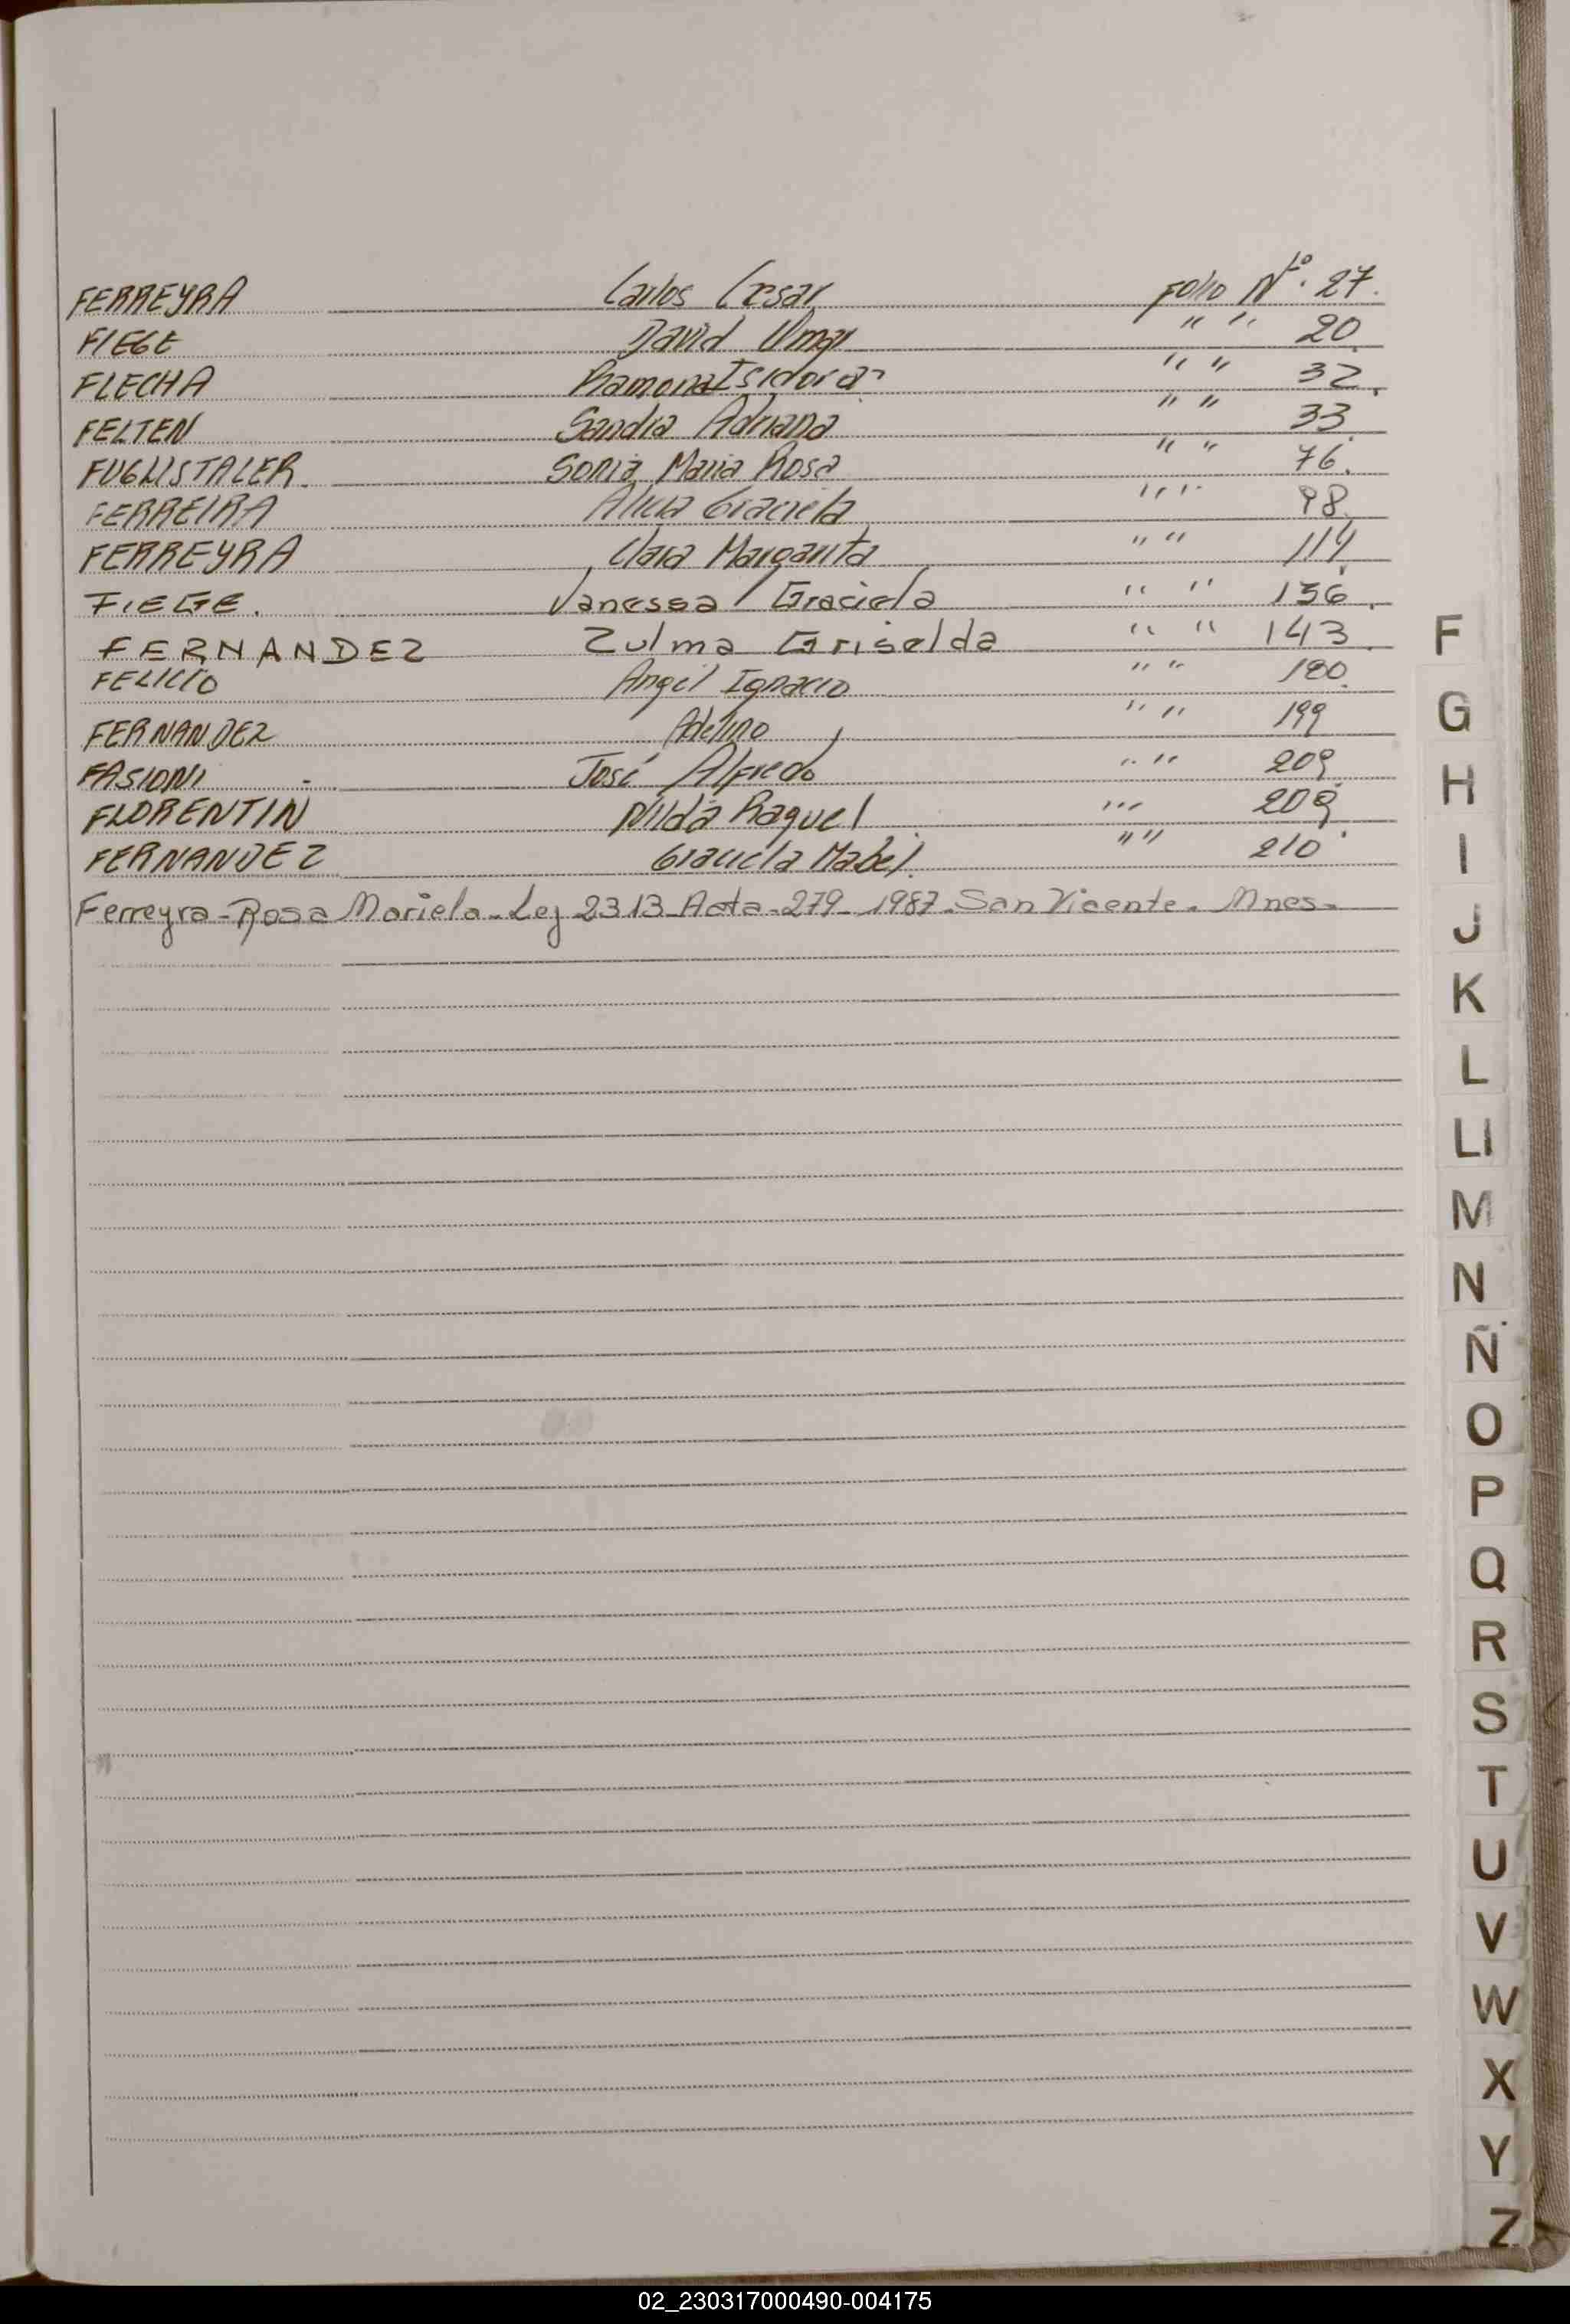 FERREYRA Carlos Cesar Folio Nº. 27.
FIEGE David Omar " " 20.
FLECHA Ramona Isidora " " 32.
FELTEN Sandra Adriana " " 33.
FUGLISTALER. Sonia Maria Rosa " " 76.
FERREIRA Alicia Graciela " " 98.
FERREYRA Clara Margarita " " 114.
FIEGE. Vanessa Graciela " " 136.
FERNANDEZ Zulma Griselda " " 143.
FELICIO Angel Ignacio " " 180.
FERNANDEZ Adelino " " 199
FASIONI José Alfredo " " 209.
FLORENTIN Nilda Raquel " " 209.
FERNANDEZ Graciela Mabel. " " 210.
Ferreyra-Rosa Mariela-Ley 2313-Acta-279-1987-San Vicente. Mnes.
F
G
H
I
J
K
L
Ll
M
N
Ñ
O
P
Q
R
S
T
U
V
W
X
Y
Z
02_230317000490-004175